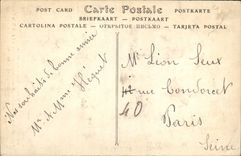 POST CARD Carte Postale POSTKARTE
BRIEFKAART — POSTKAART
CARTOLINA POSTALE — ОТКРЫТОЕ ПИСЬМО — TARJETA POSTAL
Nos souhaits de bonne année
Mr & Mme Héquet
Mr Léon Seux
40 rue Condorcet
Paris
Seine